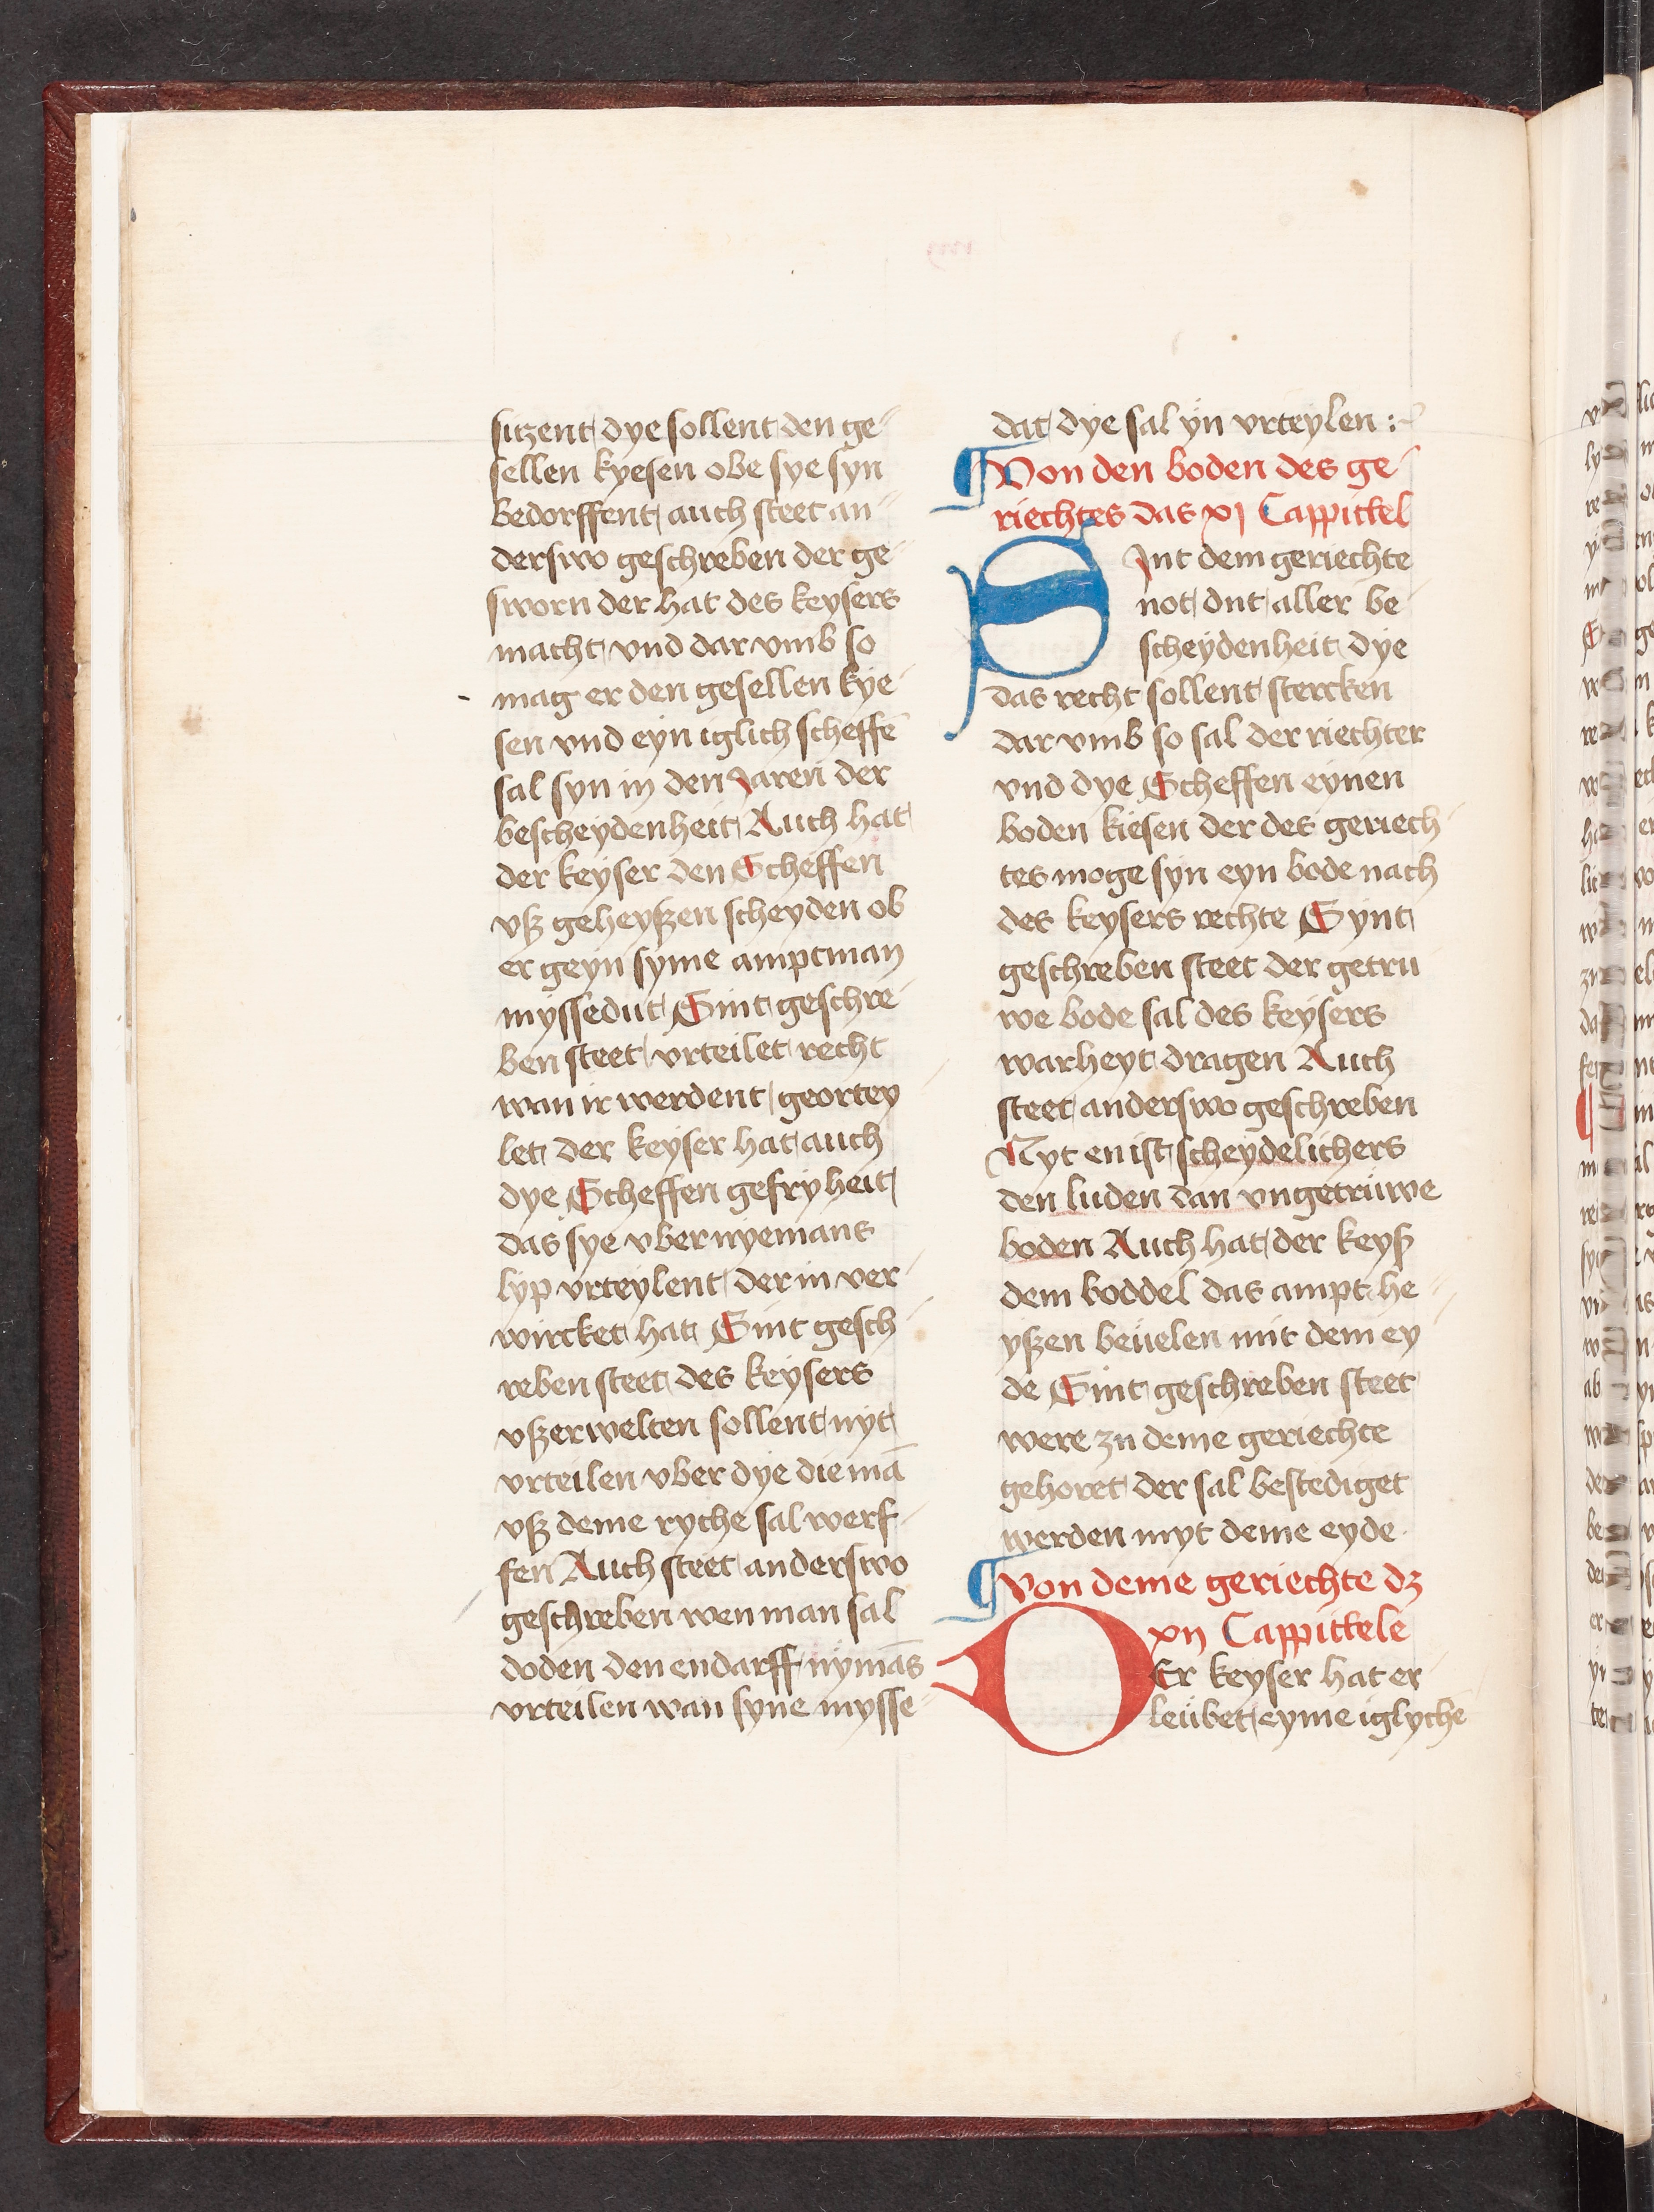 sitzent dye sollent den ge-
sellen kyesen obe sye syn
bedorffent auch steet an-
derswo geschreben der ge-
sworn der hat des keysers
macht vnd dar vmb so
mag er den gesellen kye-
sen vnd eyn iglich scheffē
sal syn in den Jaren der
bescheydenheit Auch hat
der keyser den Scheffen
vß geheyßen scheyden ob
er geyn syme amptman
myssedut Sint geschre-
ben steet vrteilet recht
wan ir werdent geortey-
let der keyser hat auch
dye Scheffen gefryheit
das sye vber nyemans
lyp vrteylent der in ver-
wircket hat Sint gesch-
reben steet des keysers
vßerwelten sollent nyt
vrteilen vber dye die mā
vß deme ryche sal werf-
fen Auch steet anderswo
geschreben wen man sal
doden den endarff nymās
vrteilen wan syne mysse-
dat dye sal yn vrteylen :-
¶ Von den boden des ge-
riechtes das xj Cappittel
SJnt dem geriechte
not dut aller be-
scheydenheit dye
das recht sollent stercken
dar vmb so sal der riechter
vnd dye Scheffen eynen
boden kiesen der des geriech-
tes moge syn eyn bode nach
des keysers rechte Synt
geschreben steet der getru-
we bode sal des keysers
warheyt dragen Auch
steet anderswo geschreben
Nyt en ist scheydelichers
den luden dan vngetruwe
boden Auch hat der keyß
dem boddel das ampt he-
yßen beuelen mit dem ey-
de Sint geschreben steet
were zu deme geriechte
gehoret der sal bestediget
werden myt deme eyde
¶ Von deme geriechte dz
xij Cappittele
DEr keyser hat er-
leubet eyme iglychē